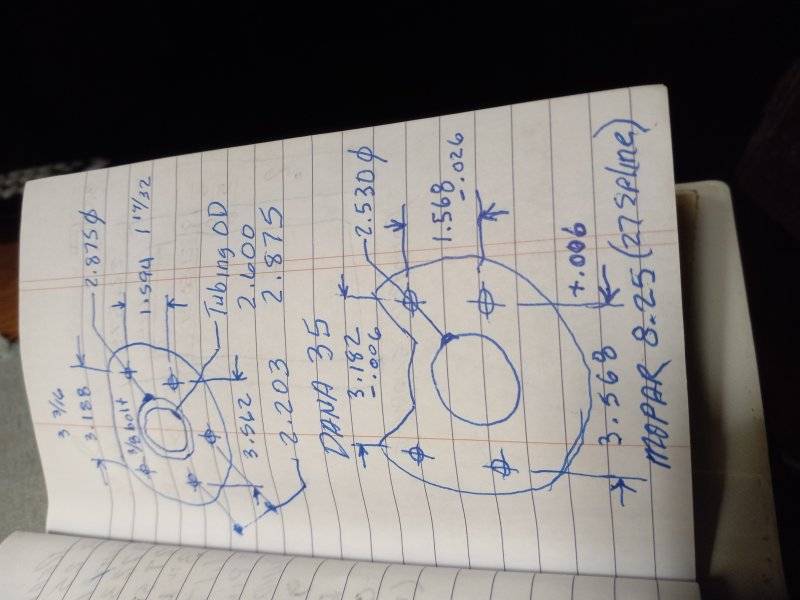 3 3/16
3.188
2.875⌀
3/8 bolt
1.594 1 19/32
3.562
Tubing OD
2.203
2.600
2.875
DANA 35
3.182
-.006
2.530⌀
1.568
-.026
3.568
+.006
MOPAR 8.25 (27 spline)